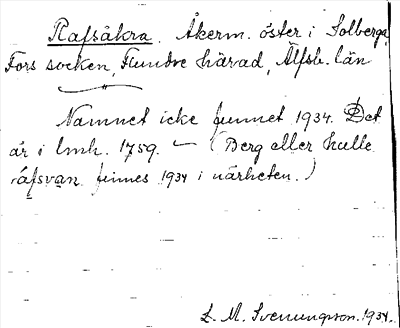 Rafsåkra. Åkerm. öster i Solberga,
Fors socken, Flundre härad, Älfsb. län
Namnet icke funnet 1934. Det
är i lmh. 1759. — (Berg eller kulle
räfsvan finnes 1934 i närheten.)
L. M. Svenungsson. 1934.